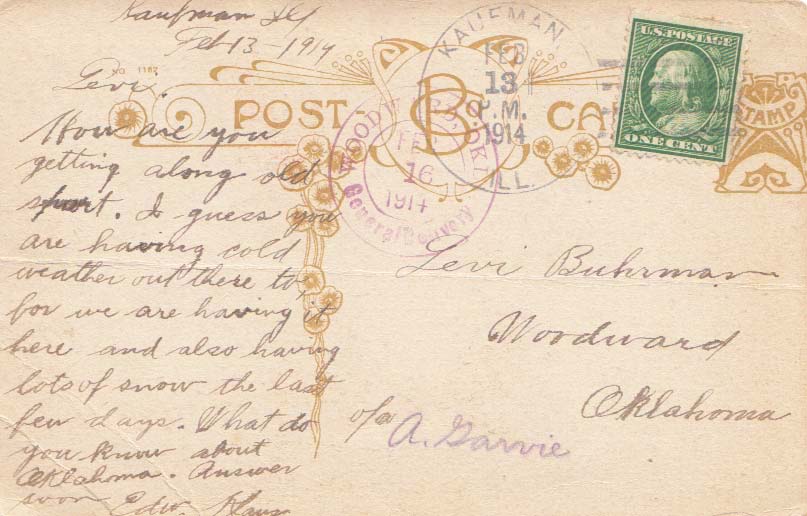 Kaufman Ill
Feb-13-1914
Levi.
How are you
getting along old
sport. I guess you
are having cold
weather out there to,
for we are having it
here and also having
lots of snow the last
few days. What do
you know about
Oklahoma. Answer
soon Edw.
NO 1182
POST CARD
KAUFMAN,
FEB
13
P.M.
1914
ILL.
WOODWARD, OKLA
FEB
16
1914
General Delivery
U.S. POSTAGE
ONE CENT
STAMP
Levi Buhrman
Woodward
Oklahoma
c/o A. Garvie